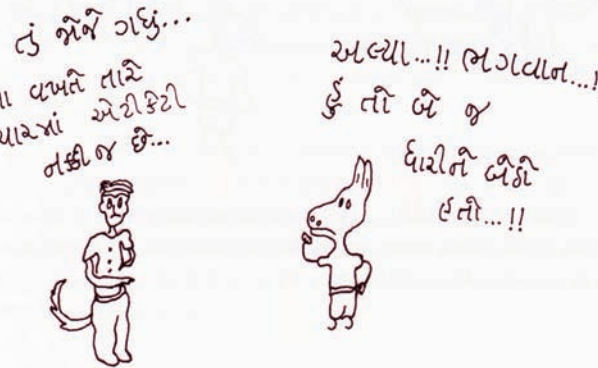 તું જોજે ગધુ...
આ વખતે તારે
ચારમાં એટીકેટી
નક્કી જ છે...
અલ્યા...!! ભગવાન...!
હું તો બે જ
ધારીને બેઠો
હતો...!!